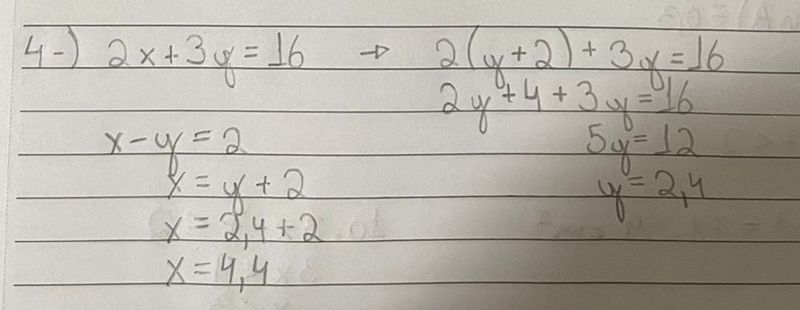 4-) 2x+3y=16 → 2(y+2)+3y=16
2y+4+3y=16
x-y=2 5y=12
x=y+2 y=2,4
x=2,4+2
x=4,4